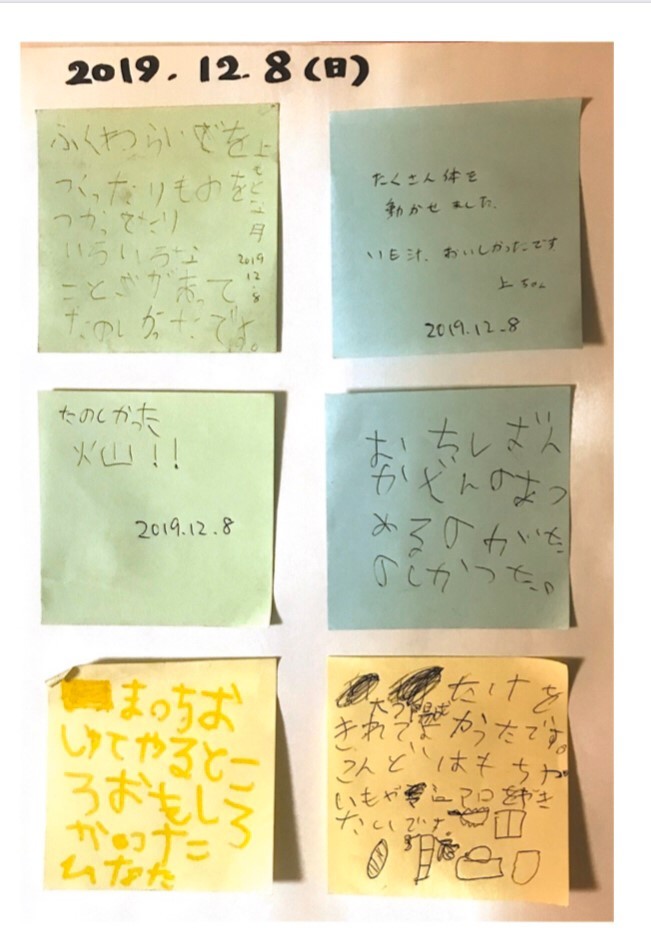 2019.12.8(日)
ふくわらいどを
つくったりものを
つかったり
いろいろな
ことができて
たのしかったです。
2019
12.8
たくさん体を
動かせました。
いも汁、おいしかったです
上ちゃん
2019.12.8
たのしかった
火山!!
2019.12.8
おちしざん
かざんのあつ
めるのがた
のしかった。
まっちお
しゅてやるとこ
ろおもしろ
かった
ひなた
たけを
きれてよかったです。
こんどはもちや
いもや
たいです。